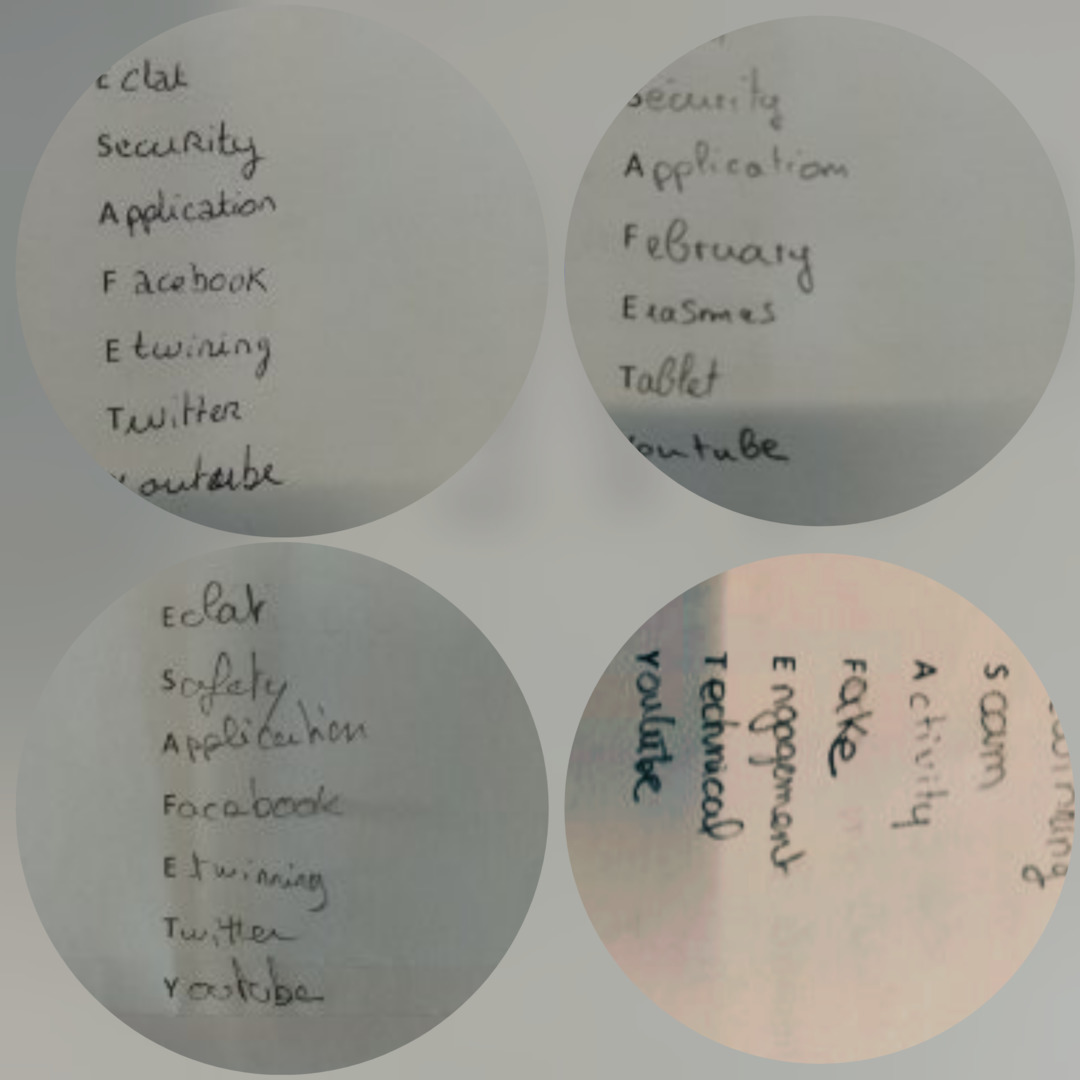 Eclat
Security
Application
Facebook
Etwining
Twitter
Youtube
Security
Application
February
Erasmes
Tablet
Youtube
Eclat
Safety
Application
Facebook
Etwinning
Twitter
Youtube
Scam
Activity
Fake
Engagement
Technical
Youtube